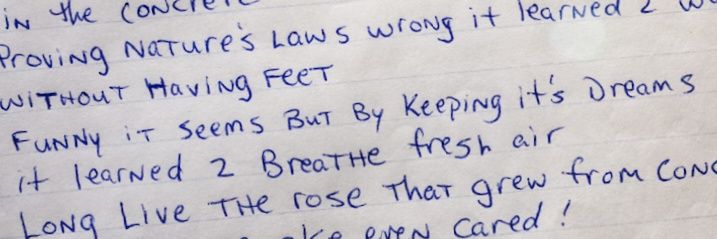 in the
Proving Nature's Laws wrong it learned 2
without Having Feet
Funny it seems But By Keeping it's Dreams
it learned 2 Breathe fresh air
Long Live The rose That grew from
even cared!